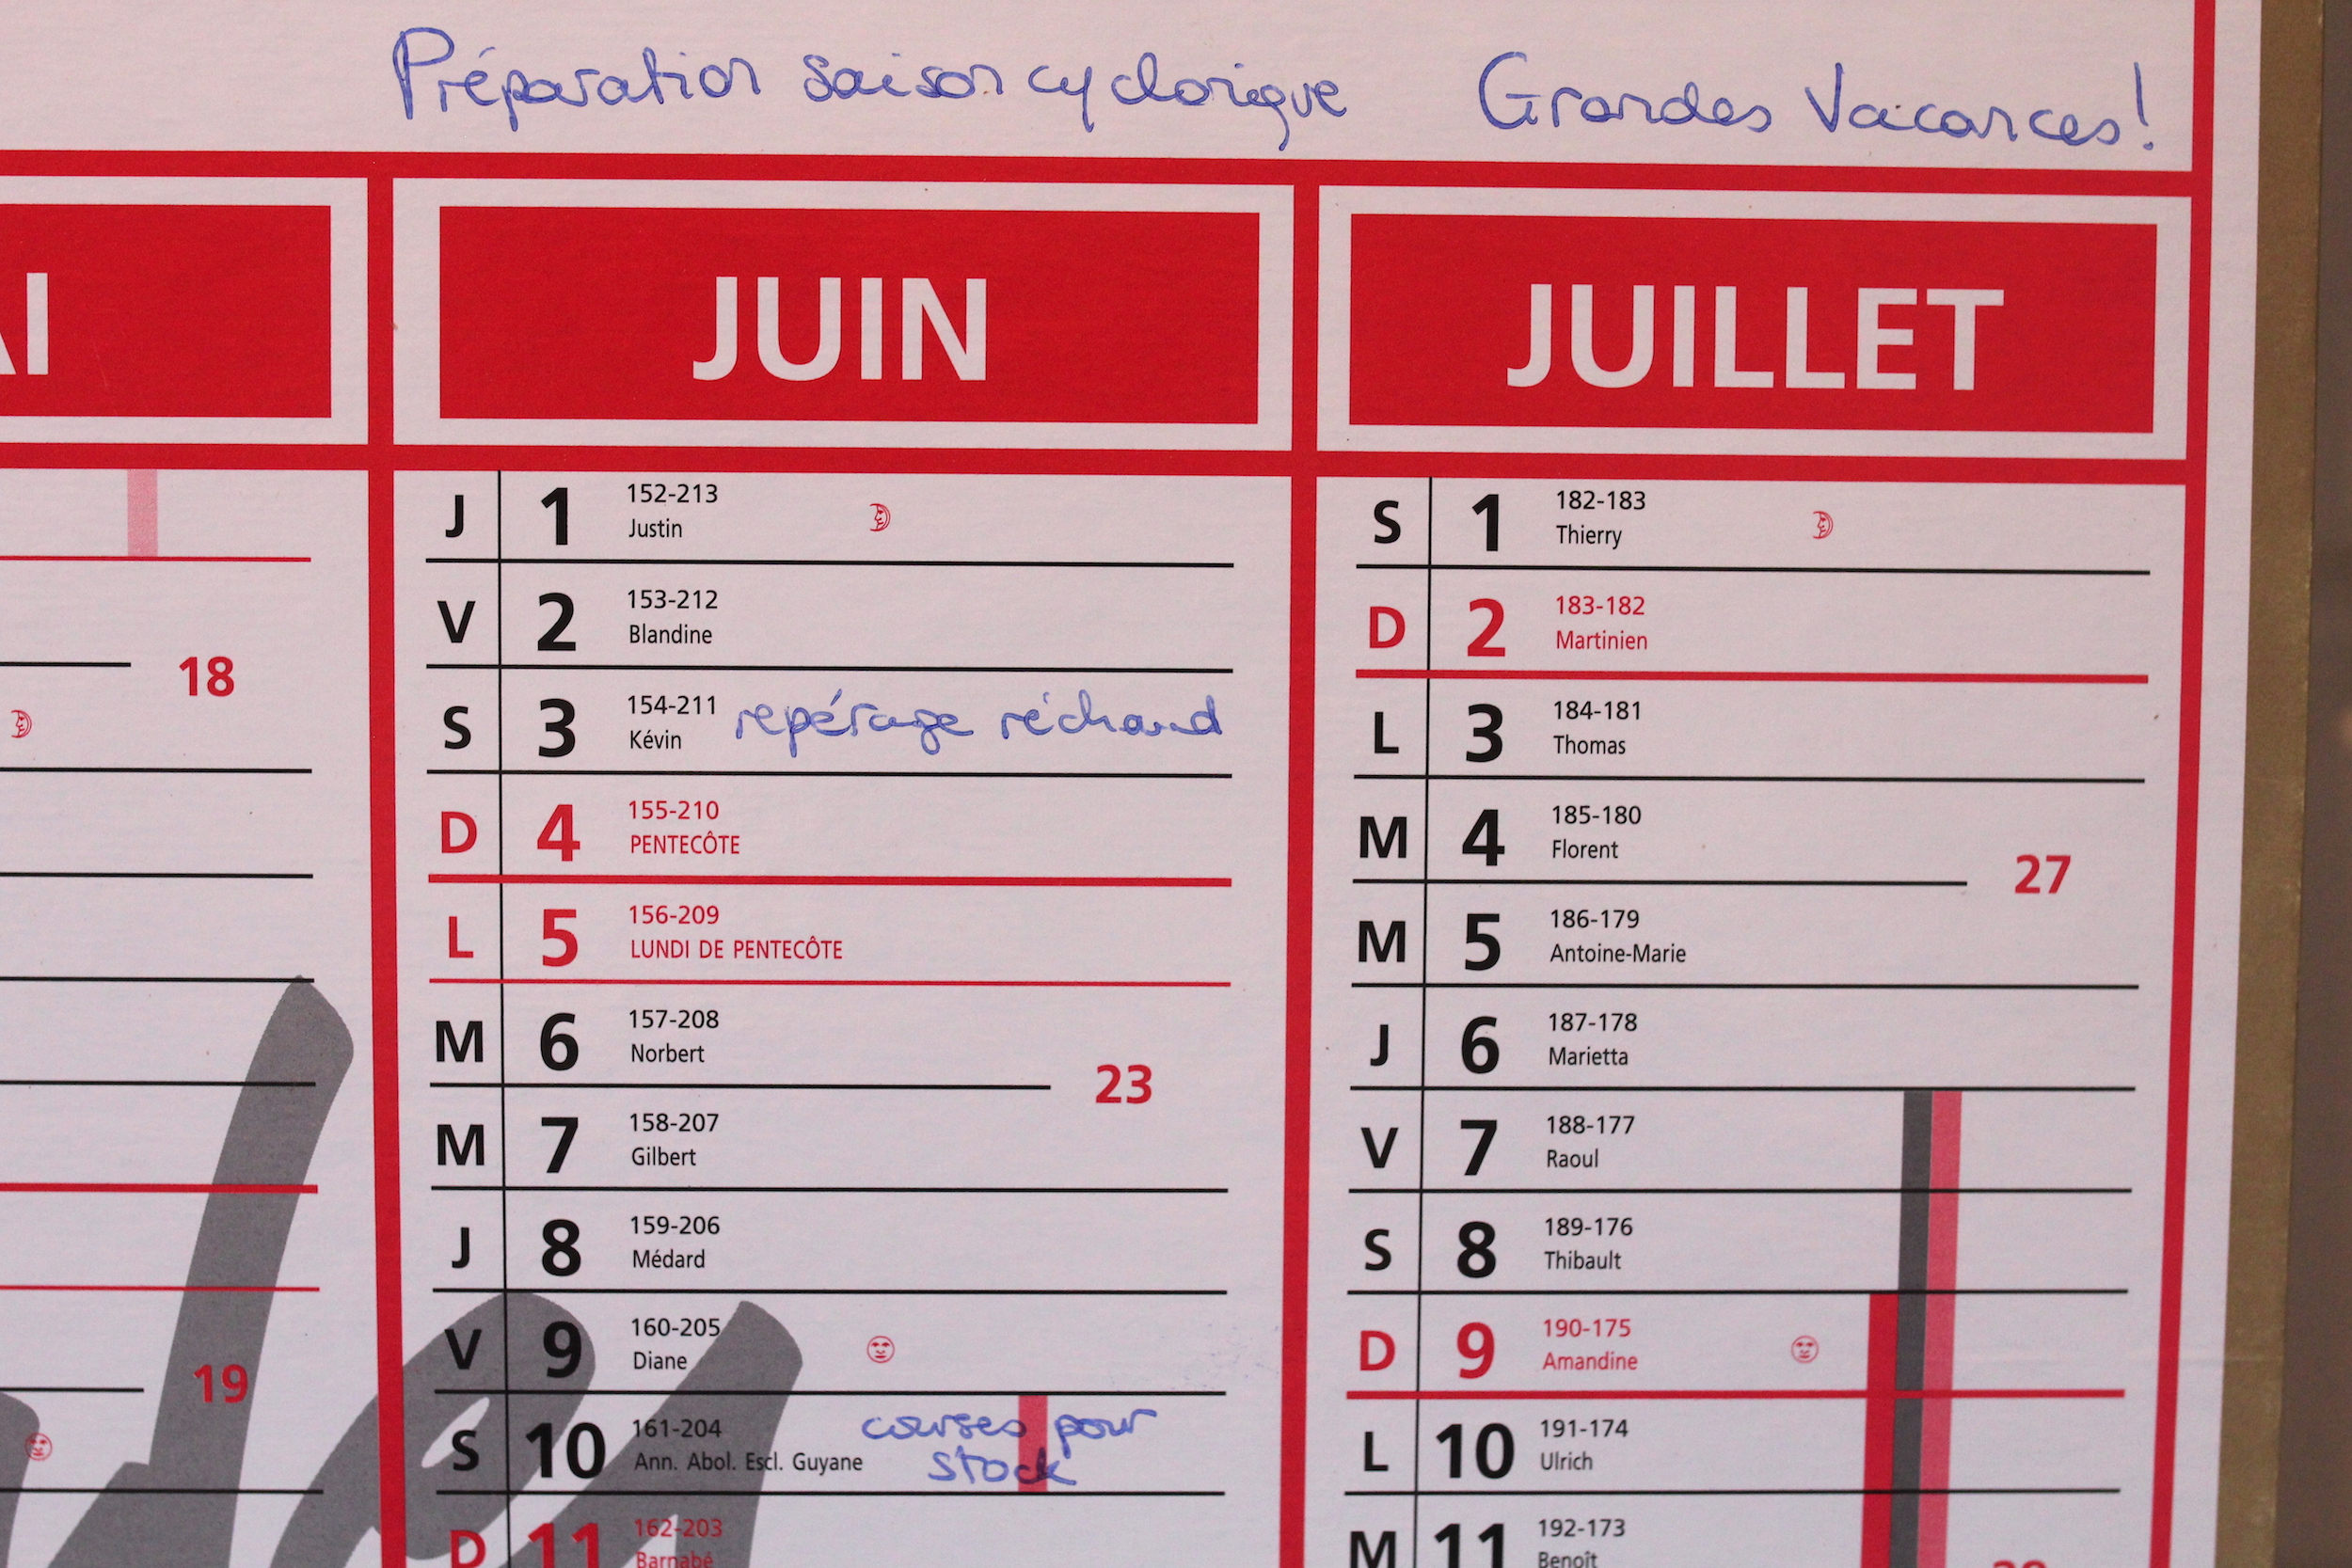 Préparation saison cyclonique Grandes Vacances!
AI
18
19
JUIN
J 1 152-213
Justin
V 2 153-212
Blandine
S 3 154-211 repérage réchaud
Kévin
D 4 155-210
PENTECÔTE
L 5 156-209
LUNDI DE PENTECÔTE
M 6 157-208
Norbert
23
M 7 158-207
Gilbert
J 8 159-206
Médard
V 9 160-205
Diane
S 10 161-204 courses pour
Ann. Abol. Escl. Guyane stock
D 11 162-203
Barnabé
JUILLET
S 1 182-183
Thierry
D 2 183-182
Martinien
L 3 184-181
Thomas
M 4 185-180
Florent
27
M 5 186-179
Antoine-Marie
J 6 187-178
Marietta
V 7 188-177
Raoul
S 8 189-176
Thibault
D 9 190-175
Amandine
L 10 191-174
Ulrich
M 11 192-173
Benoît